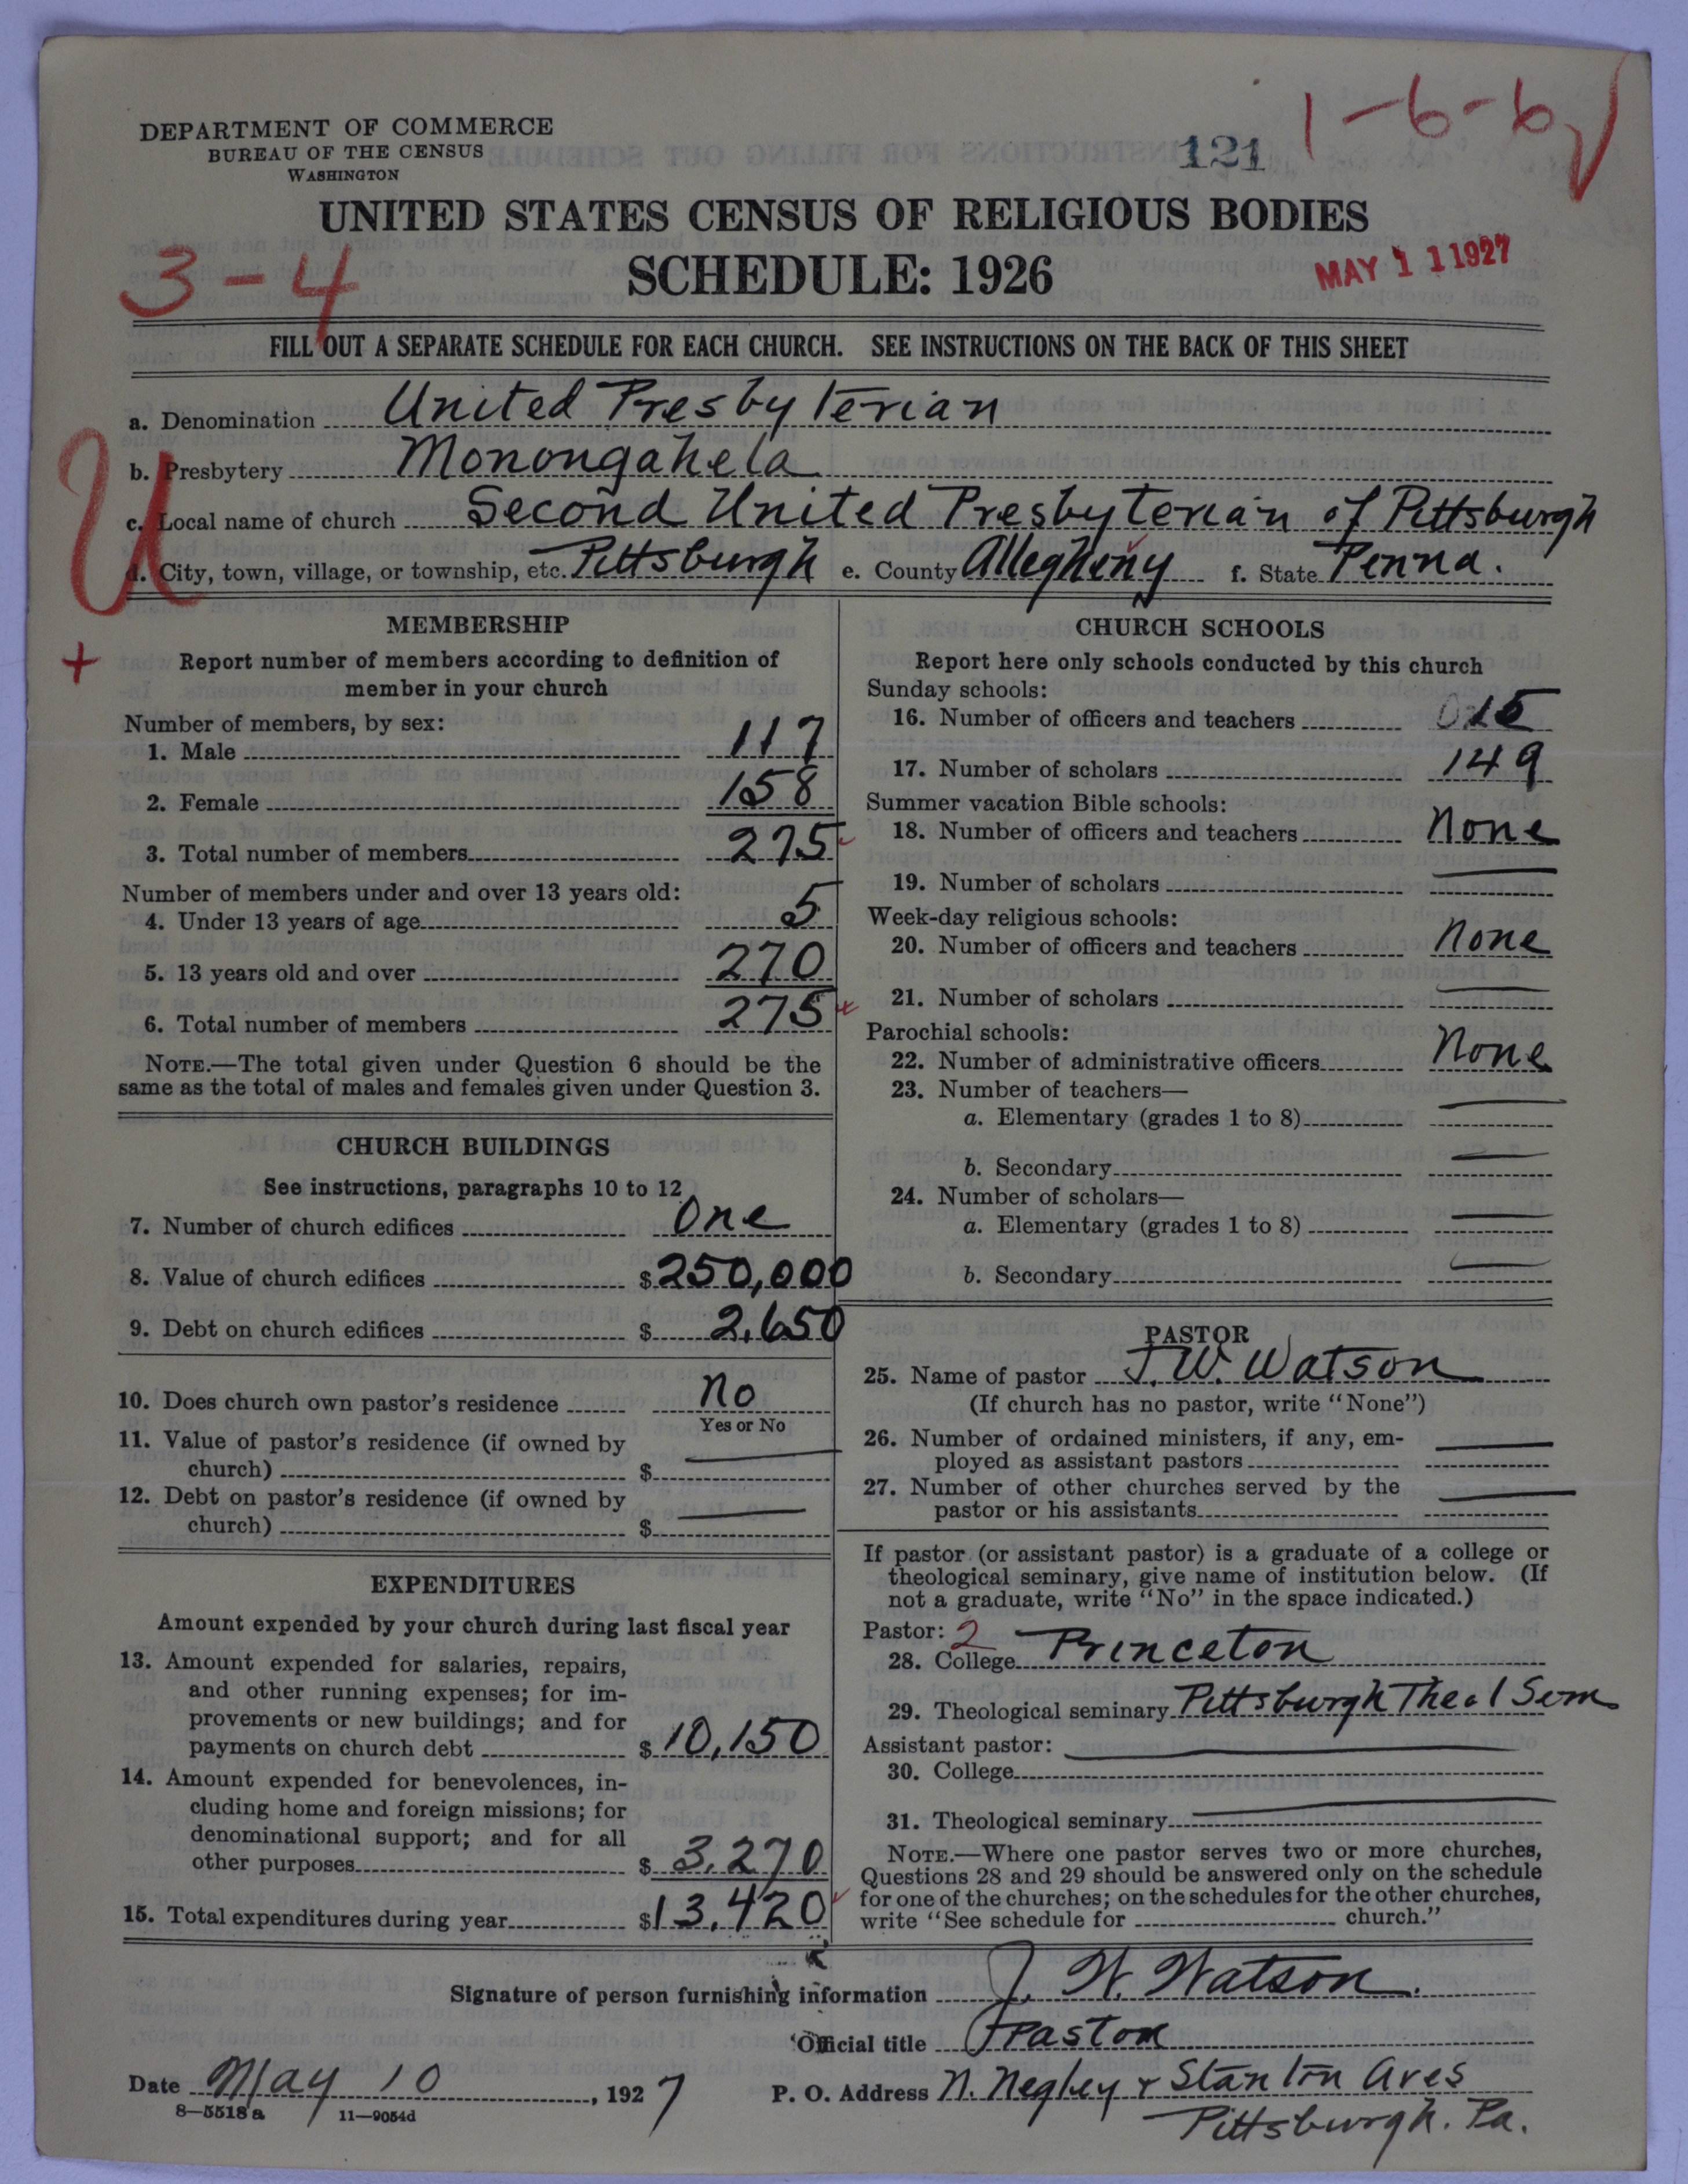 DEPARTMENT OF COMMERCE
BUREAU OF THE CENSUS
WASHINGTON
121
1-6-6
UNITED STATES CENSUS OF RELIGIOUS BODIES
3-4
SCHEDULE: 1926
MAY 11 1927
FILL OUT A SEPARATE SCHEDULE FOR EACH CHURCH. SEE INSTRUCTIONS ON THE BACK OF THIS SHEET
a. Denomination United Presbyterian
U
b. Presbytery Monongahela
c. Local name of church Second United Presbyterian of Pittsburgh
d. City, town, village, or township, etc. Pittsburgh e. County Allegheny f. State Penna.
MEMBERSHIP
+
Report number of members according to definition of
member in your church
Number of members, by sex:
1. Male 117
2. Female 158
3. Total number of members 275
Number of members under and over 13 years old:
4. Under 13 years of age 5
5. 13 years old and over 270
6. Total number of members 275
NOTE.—The total given under Question 6 should be the
same as the total of males and females given under Question 3.
CHURCH BUILDINGS
See instructions, paragraphs 10 to 12
7. Number of church edifices One
8. Value of church edifices $250,000
9. Debt on church edifices $2,650
10. Does church own pastor's residence No
Yes or No
11. Value of pastor's residence (if owned by
church) $ —
12. Debt on pastor's residence (if owned by
church) $ —
EXPENDITURES
Amount expended by your church during last fiscal year
13. Amount expended for salaries, repairs,
and other running expenses; for im-
provements or new buildings; and for
payments on church debt $10,150
14. Amount expended for benevolences, in-
cluding home and foreign missions; for
denominational support; and for all
other purposes $3,270
15. Total expenditures during year $13,420
CHURCH SCHOOLS
Report here only schools conducted by this church
Sunday schools:
16. Number of officers and teachers 15
17. Number of scholars 149
Summer vacation Bible schools:
18. Number of officers and teachers None
19. Number of scholars —
Week-day religious schools:
20. Number of officers and teachers None
21. Number of scholars —
Parochial schools:
22. Number of administrative officers None
23. Number of teachers—
a. Elementary (grades 1 to 8) —
b. Secondary —
24. Number of scholars—
a. Elementary (grades 1 to 8) —
b. Secondary —
PASTOR
25. Name of pastor J. W. Watson
(If church has no pastor, write "None")
26. Number of ordained ministers, if any, em-
ployed as assistant pastors —
27. Number of other churches served by the
pastor or his assistants —
If pastor (or assistant pastor) is a graduate of a college or
theological seminary, give name of institution below. (If
not a graduate, write "No" in the space indicated.)
Pastor: 2
28. College Princeton
29. Theological seminary Pittsburgh Theol Sem
Assistant pastor: —
30. College
31. Theological seminary —
NOTE.—Where one pastor serves two or more churches,
Questions 28 and 29 should be answered only on the schedule
for one of the churches; on the schedules for the other churches,
write "See schedule for church."
Signature of person furnishing information J. W. Watson.
Official title Pastor
Date May 10, 1927 P. O. Address N. Negley & Stanton Aves
8—5518a 11—9054d
Pittsburgh. Pa.